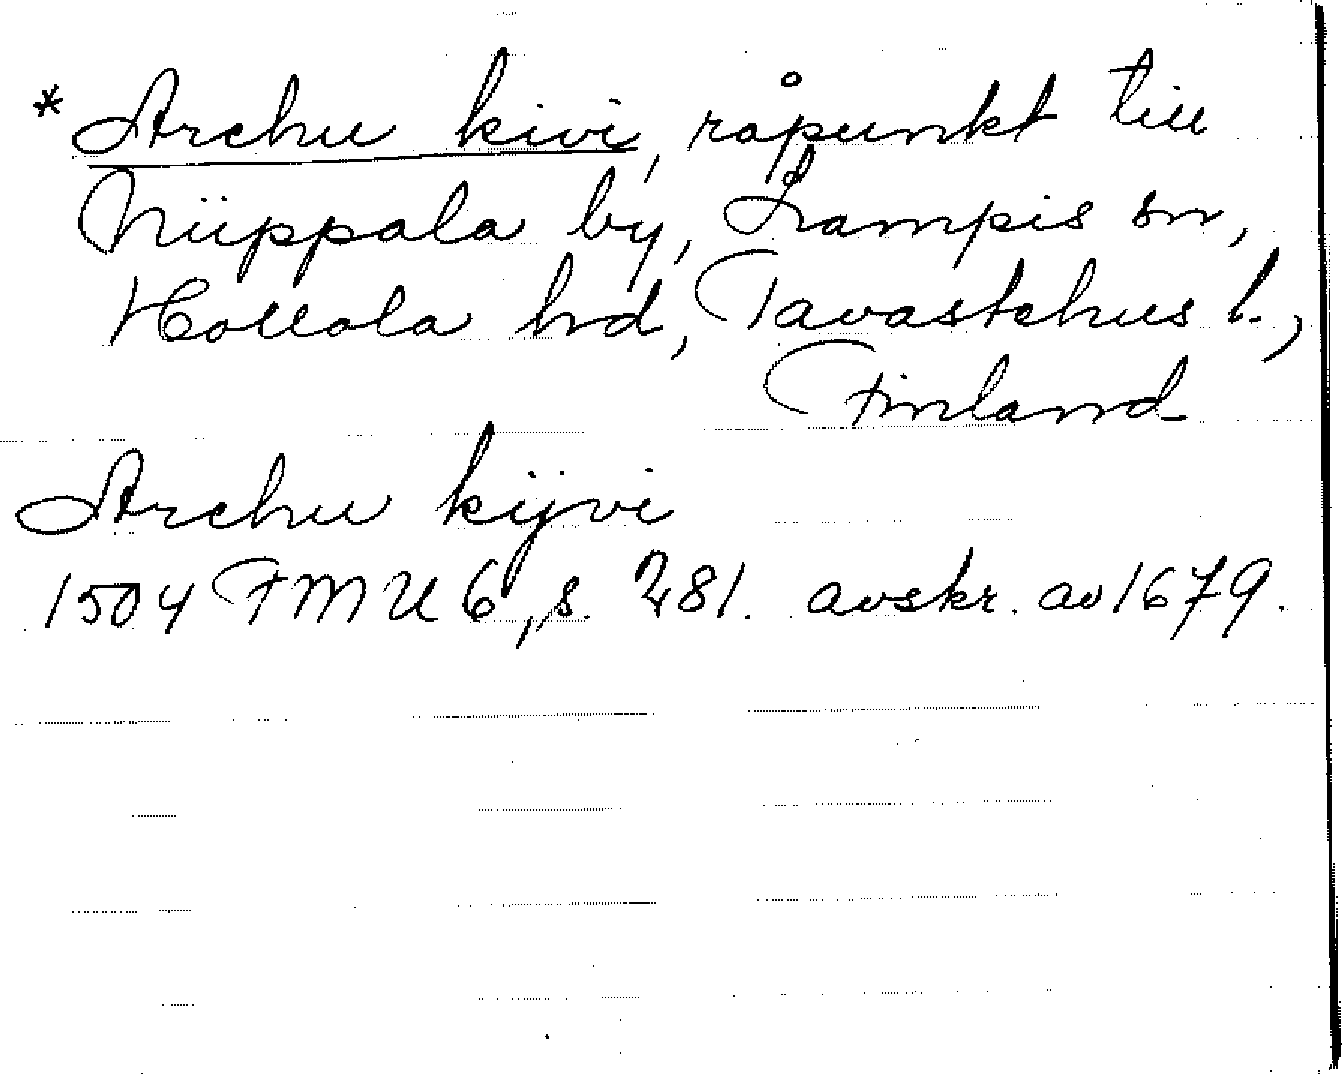 * Archu kivi, råpunkt till
Niippala by, Lampis sn,
Hollola hrd, Tavastehus l.,
Finland
Archu kijvi
1504 FMU 6, s. 281. avskr. av 1679.